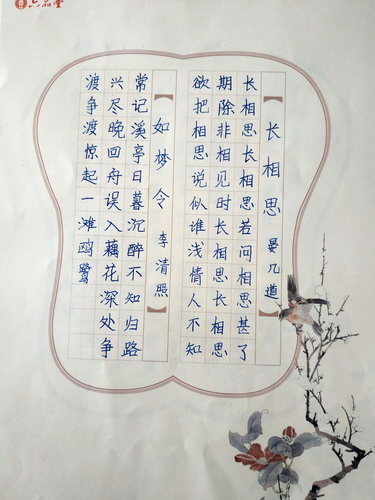 六品堂
【长相思 晏几道】
长相思长相思若问相思甚了
期除非相见时长相思长相思
欲把相思说似谁浅情人不知
【如梦令 李清照】
常记溪亭日暮沉醉不知归路
兴尽晚回舟误入藕花深处争
渡争渡惊起一滩鸥鹭